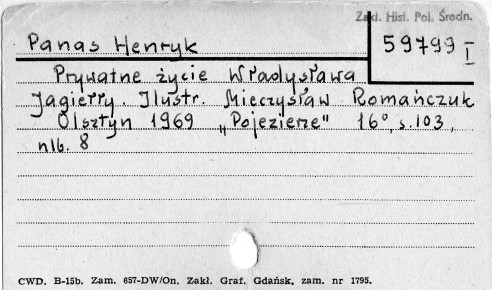 Zakł. Hist. Pol. Średn.
Panas Henryk
59799
I
Prywatne życie Władysława
Jagiełły. Ilustr. Mieczysław Romańczuk
Olsztyn 1969 „Pojezierze" 16°, s. 103,
nlb. 8
CWD. B-15b. Zam. 657-DW/On. Zakł. Graf. Gdańsk, zam. nr 1795.